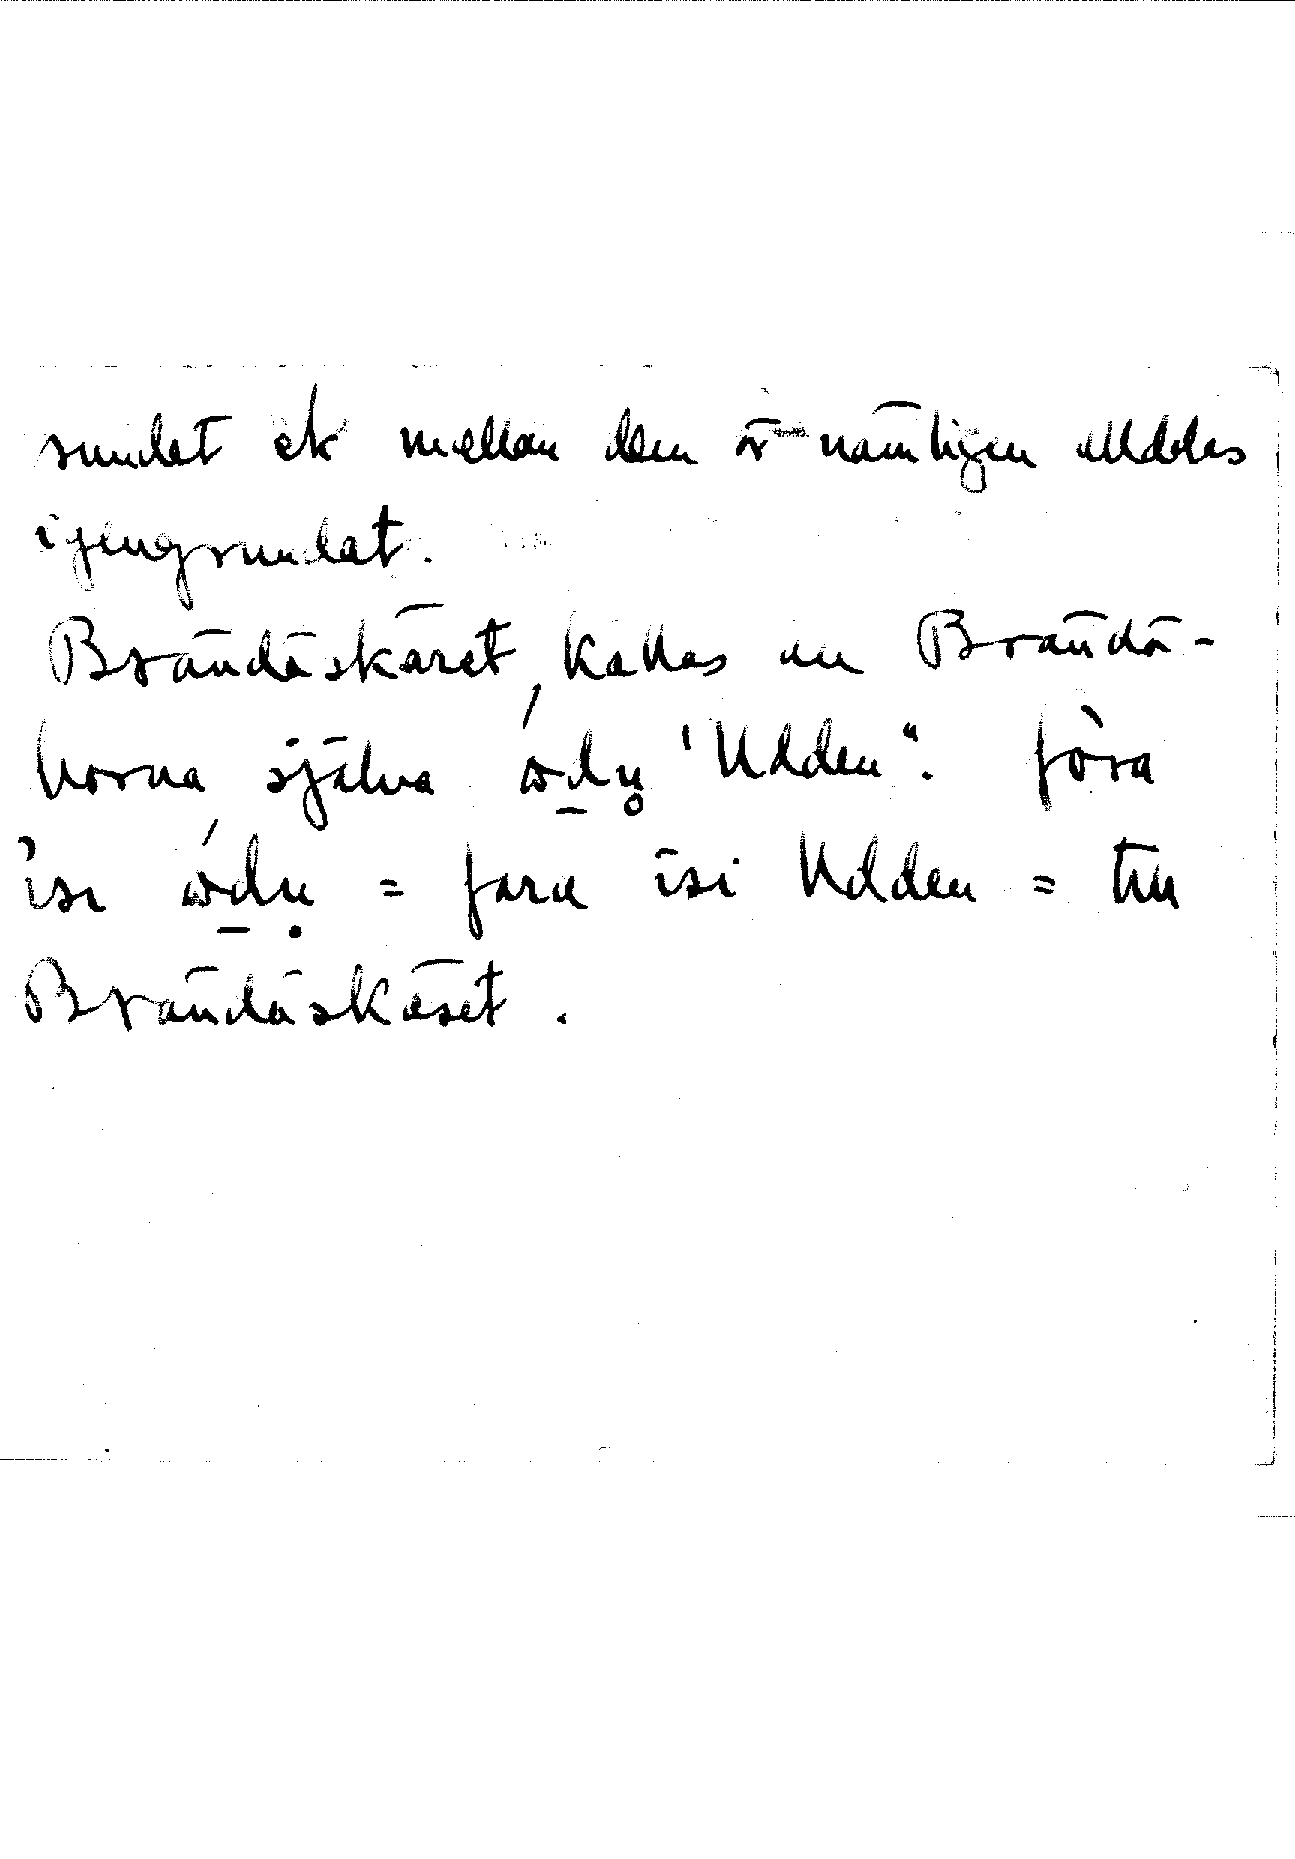 sundet mellan dem är nämligen alldeles
igengrundat.
Brändöskäret kallas av Brändö-
borna själva "Udden". fòra
isi = fara isi Udden = till
Brändöskäret.